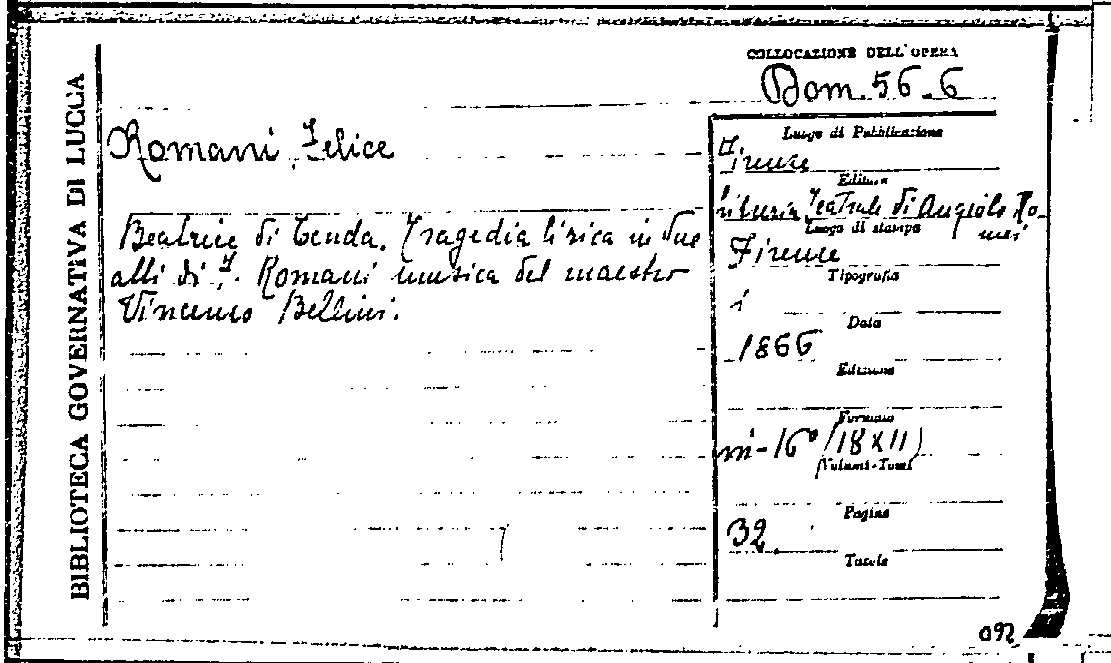 BIBLIOTECA GOVERNATIVA DI LUCCA
COLLOCAZIONE DELL'OPERA
Bom. 56-6
Romani, Felice
Beatrice di Tenda. Tragedia lirica in due
atti di F. Romani musica del maestro
Vincenzo Bellini.
Luogo di Pubblicazione
Firenze
Editore
libreria Teatrale di Angiolo Ro-
mei
Luogo di stampa
Firenze
Tipografia
Data
1866
Edizione
Formato
in-16° (18x11)
Volumi-Tomi
Pagine
32
Tavole
092